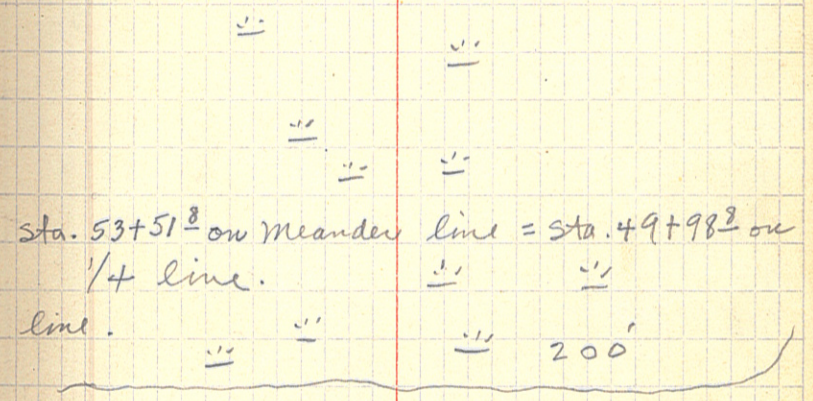 sta. 53+51 8 on Meander line = sta. 49+98 8 on
1/4 line.
line.
200'